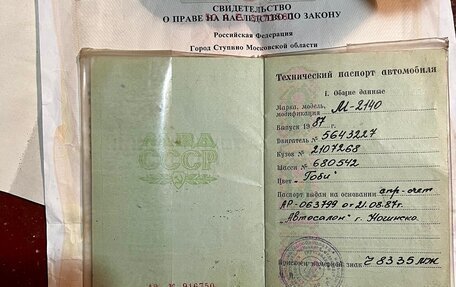 СВИДЕТЕЛЬСТВО
О ПРАВЕ НА НАСЛЕДСТВО ПО ЗАКОНУ
Российская Федерация
Город Ступино Московской области
СССР
№ 916750
Технический паспорт автомобиля
I. Общие данные
Марка, модель,
модификация М-2140
Выпуск 1987 г.
Двигатель № 5643227
Кузов № 2107268
Шасси № 680542
Цвет „Гоби"
Паспорт выдан на основании спр-счет
АР-063799 от 21.08.87г.
„Автосалон" г. Ногинска
Присвоен номерной знак Ч 8335 МЖ